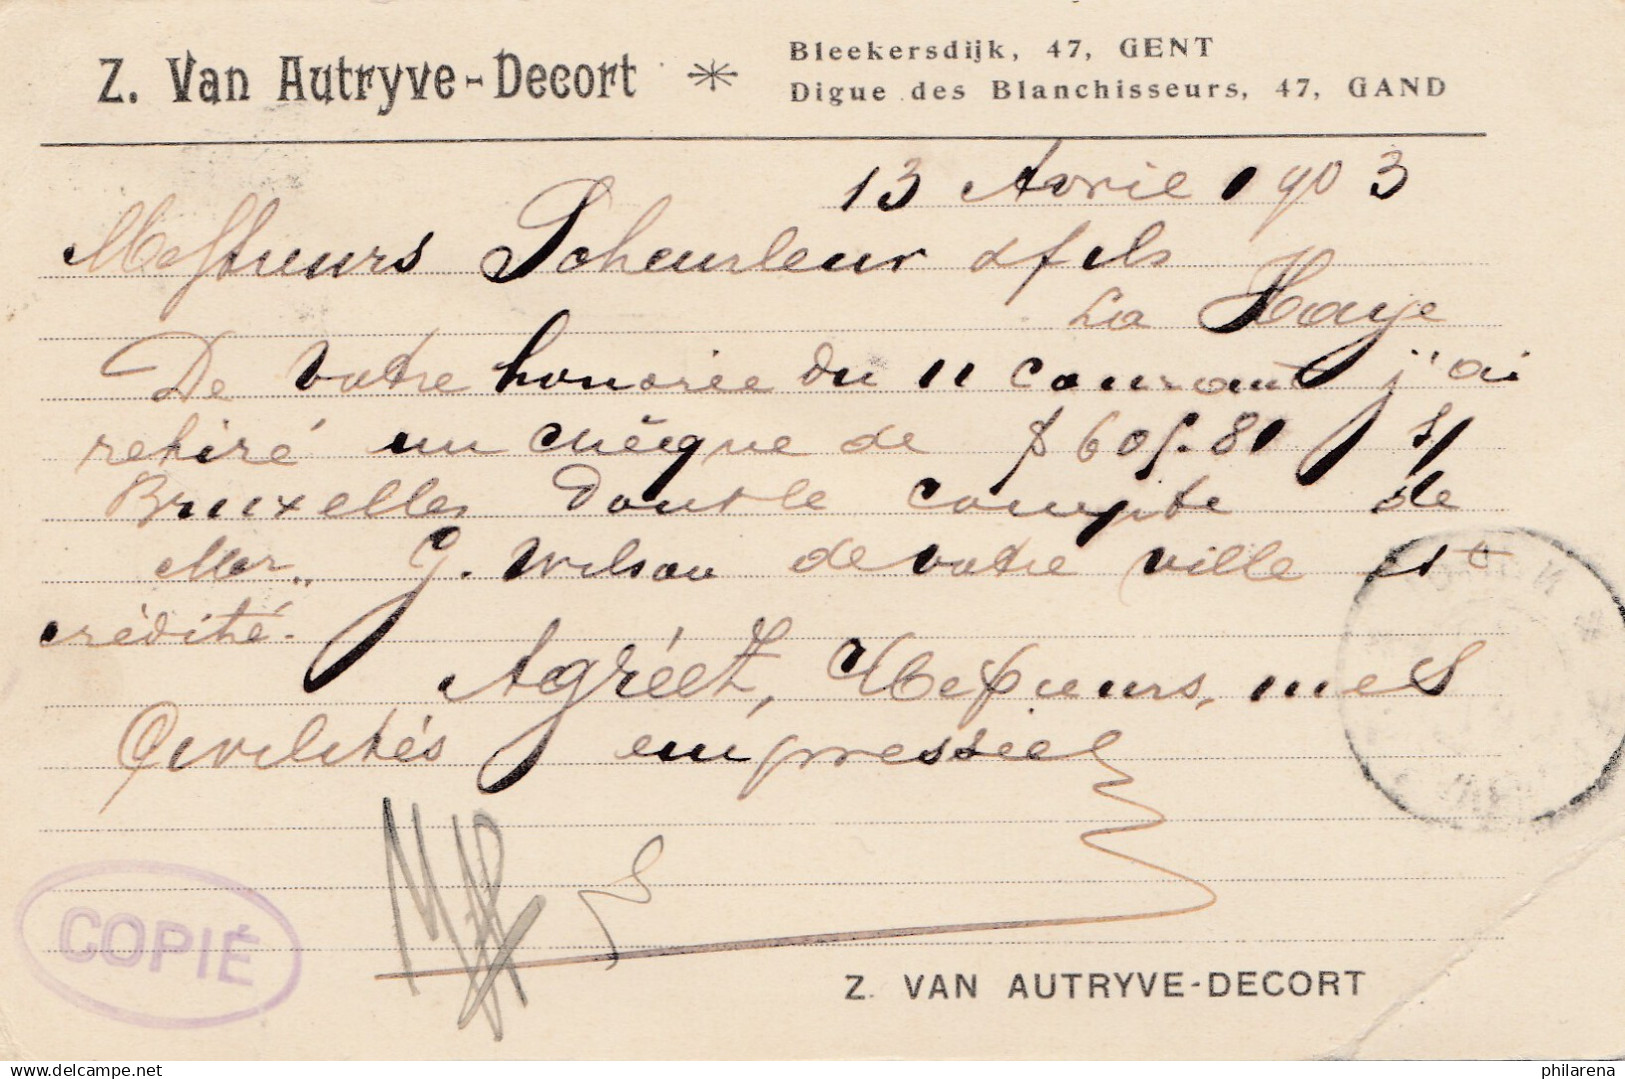 Z. Van Autryve-Decort
Bleekersdijk, 47, GENT
Digue des Blanchisseurs, 47, GAND
13 Avril 1903
Messieurs Scheurleer & fils
La Haye
De votre honorée du 11 courant j'ai
retiré un chèque de 605.80 s/
Bruxelles dont le compte de
Mer,, G. Wilson de votre ville est
crédité.
Agréez, Messieurs, mes
Civilités empressées
COPIÉ
Z. VAN AUTRYVE-DECORT
philarena